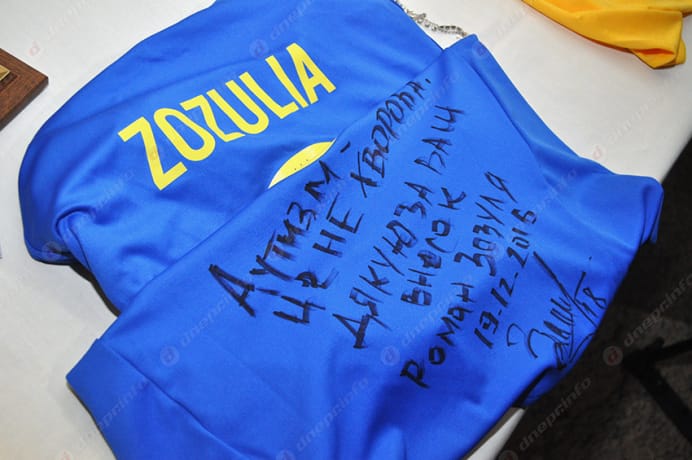 ZOZULIA
АУТИЗМ -
ЦЕ НЕ ХВОРОБА.
ДЯКУЮ ЗА ВАШ
ВНЕСОК
РОМАН ЗОЗУЛЯ
19-12-2015
18
dneprinfo